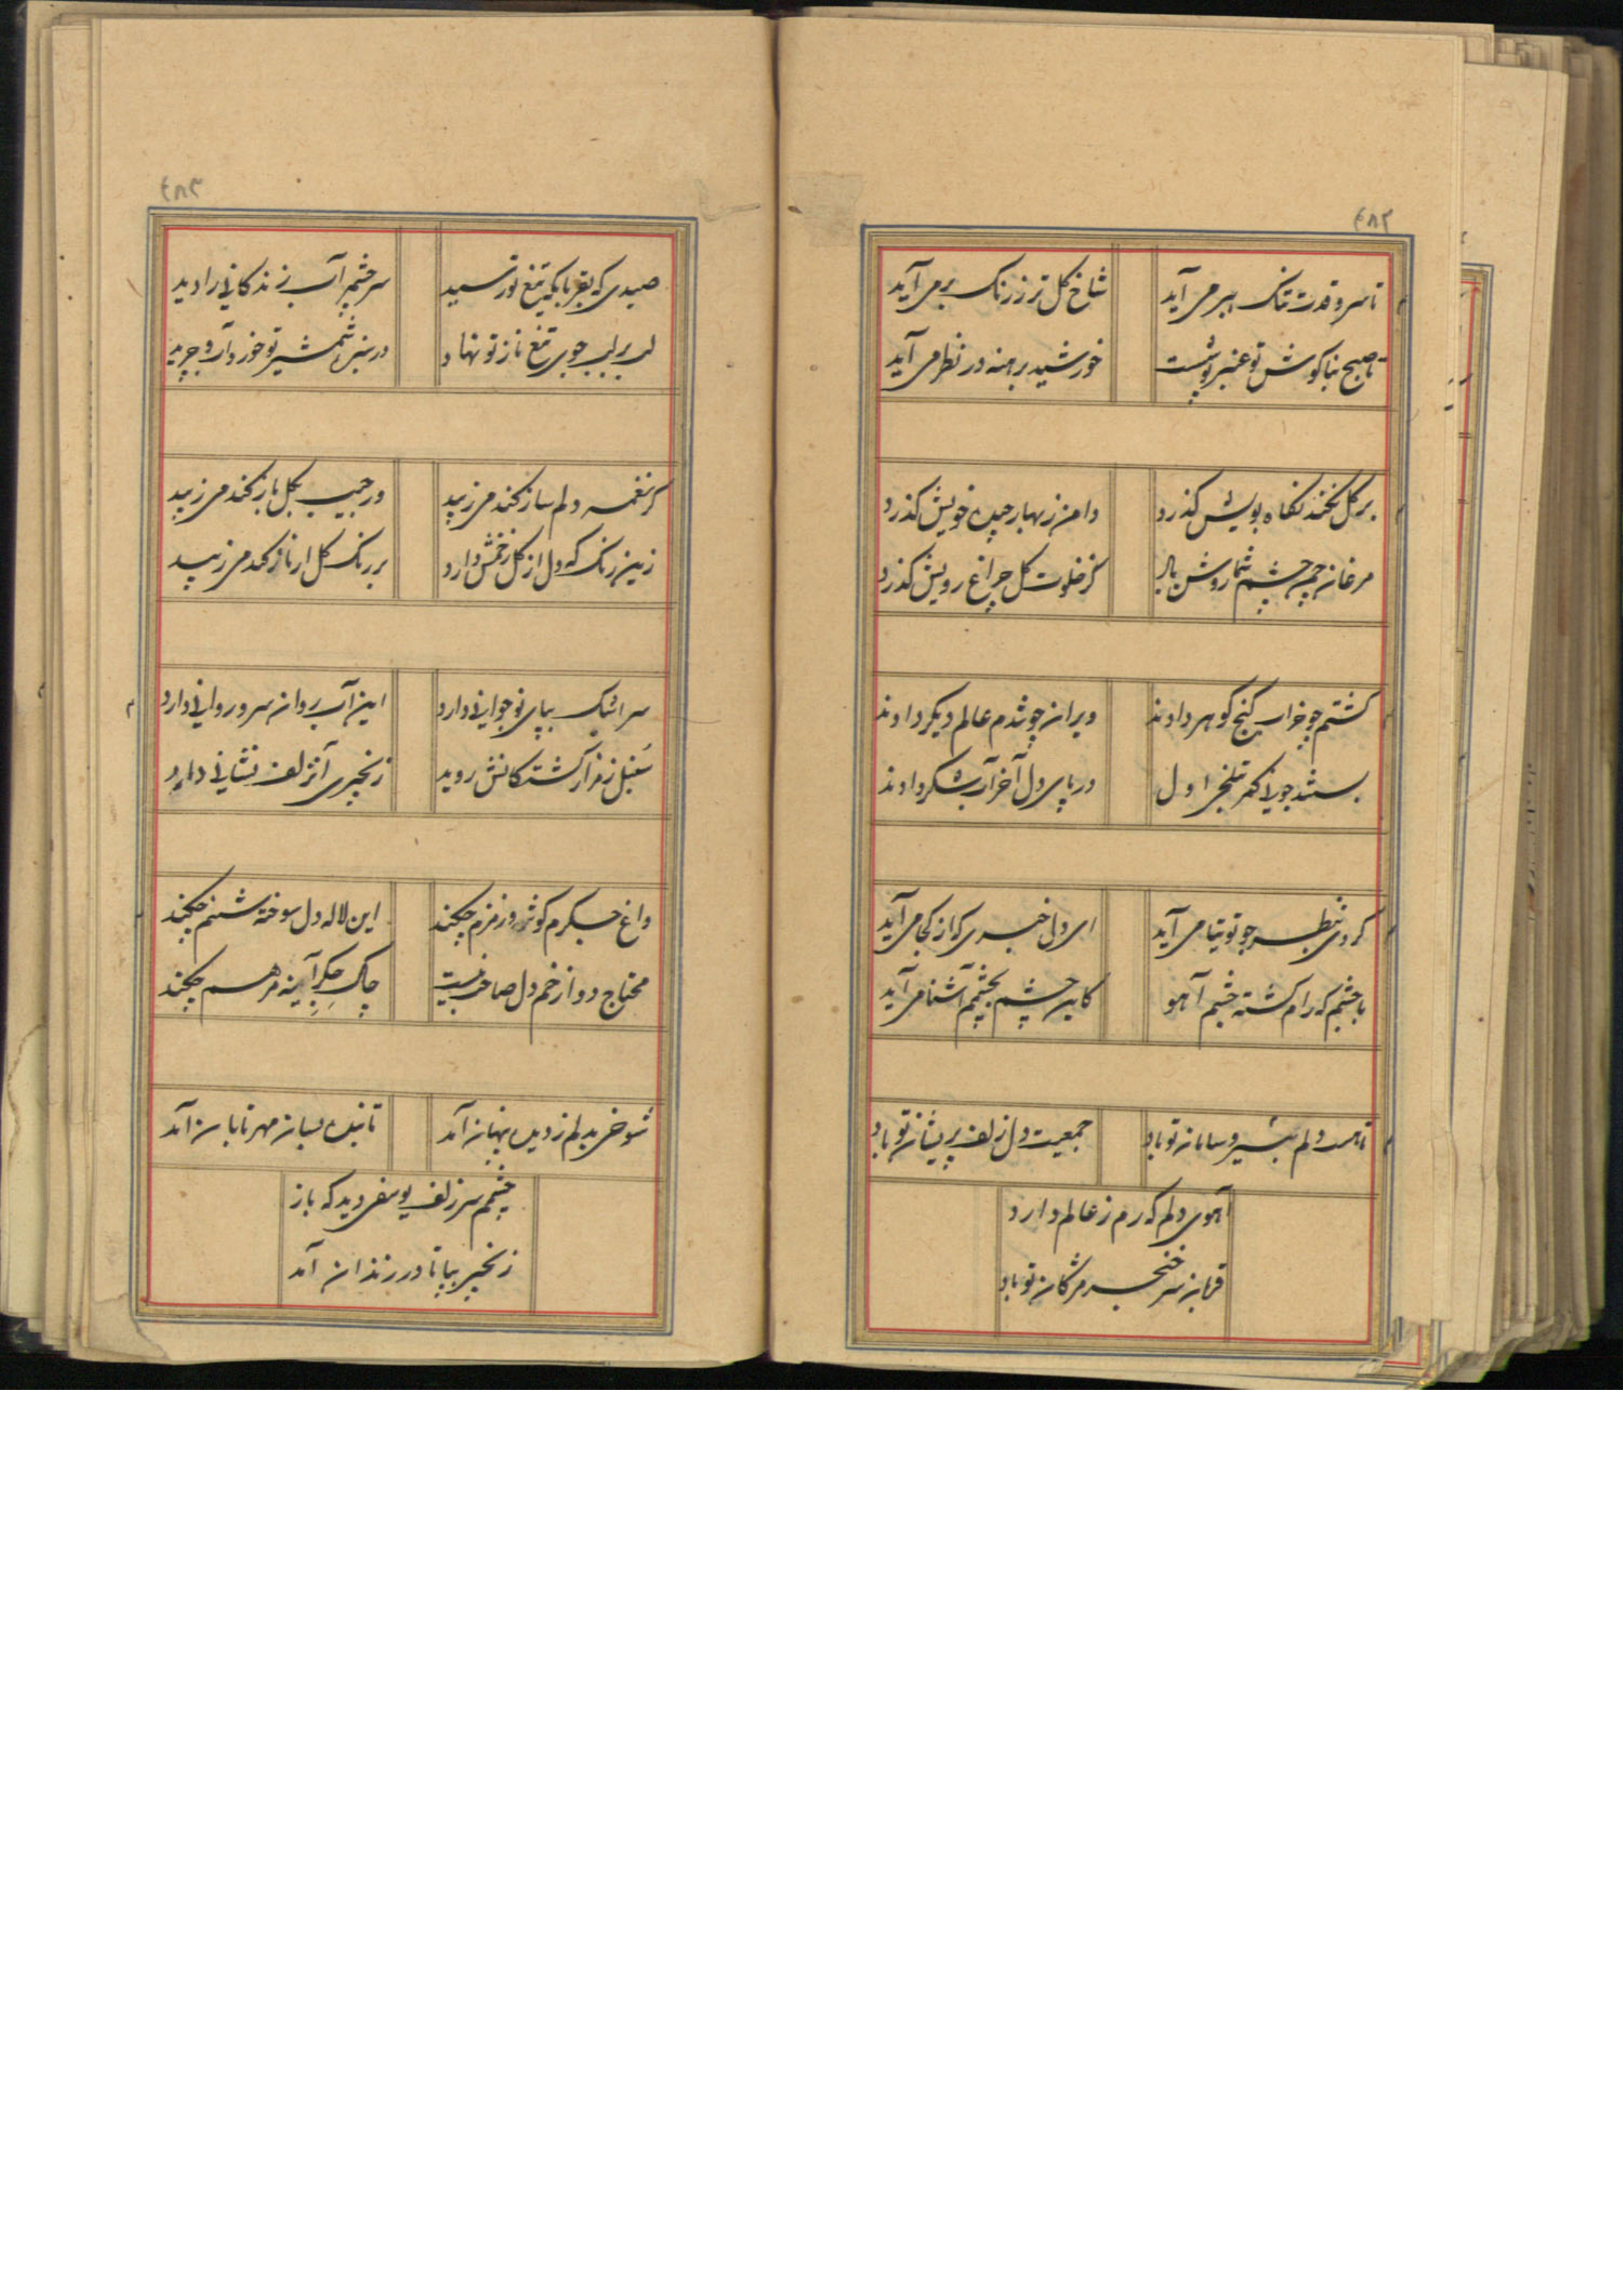 ۴۸۲
تا سرو قدت تنک ببر می آید
شاخ گل تر ز رنک بر می آید
تا صبح بناکوش تو عنبر پوشست
خورشید برهنه در نظر می آید
بر کل نکند نکاه بویش گذرد
دامن ز بهار چیده خویش گذرد
مرغان چمن چشم شما روشن باد
کز خلوت کل چراغ رویش گذرد
گشتم چو خراب کنج کوهر دادند
ویران چو شدم عالم دیکر دادند
اول
در پای دل آخر آن شکر دادند
گردی بنظر چو توتیا می آید
ای دل خبری که از کجا می آید
با چشم که رام گشته چشم آهو
کاین چشم بچشمم آشنا می آید
تا هست دلم بی سر و سامان تو باد
جمعیت دل زلف پریشان تو باد
آهوی دلم که رم ز عالم دارد
قربان سر خنجر مژکان تو باد
۴۸۳
صیدی که بقربانکه تیغ تو رسید
سر چشمه آب زندکانی را دید
لب بر لب جوی تیغ ناز تو نهاد
در سبزه شمشیر تو خورد آب و چرید
گر نغمه دلم ساز نکند می زیبد
ور جیب بکل باز نکند می زیبد
زین رنک که دل از کل زخمش دارد
بر رنک کل ار ناز کند می زیبد
سر اشک بپای نوجوانی دارد
این آب روان سرو روانی دارد
سنبل ز مزار کشتکانش روید
زنجیری آن زلف نشانی دارد
داغ جکرم کوثر و زمزم چکند
این لاله دل سوخته شبنم چکند
محتاج دوا زخم دل صافی نیست
چاک جکر آینه مرهم چکند
شوخی بدلم ز دیده پنهان آمد
تابنده بسان مهر تابان آمد
چشمم سر زلف یوسفی دید که باز
زنجیر بپا تا در زندان آمد